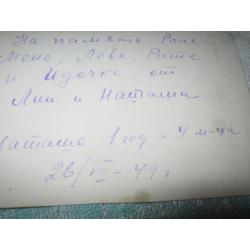 На память Роне
Моне, Леве, Рите
и Идочке от
Лии и Наташи.
Наташе 1 год и 4 м-ца
26/VIII-49г